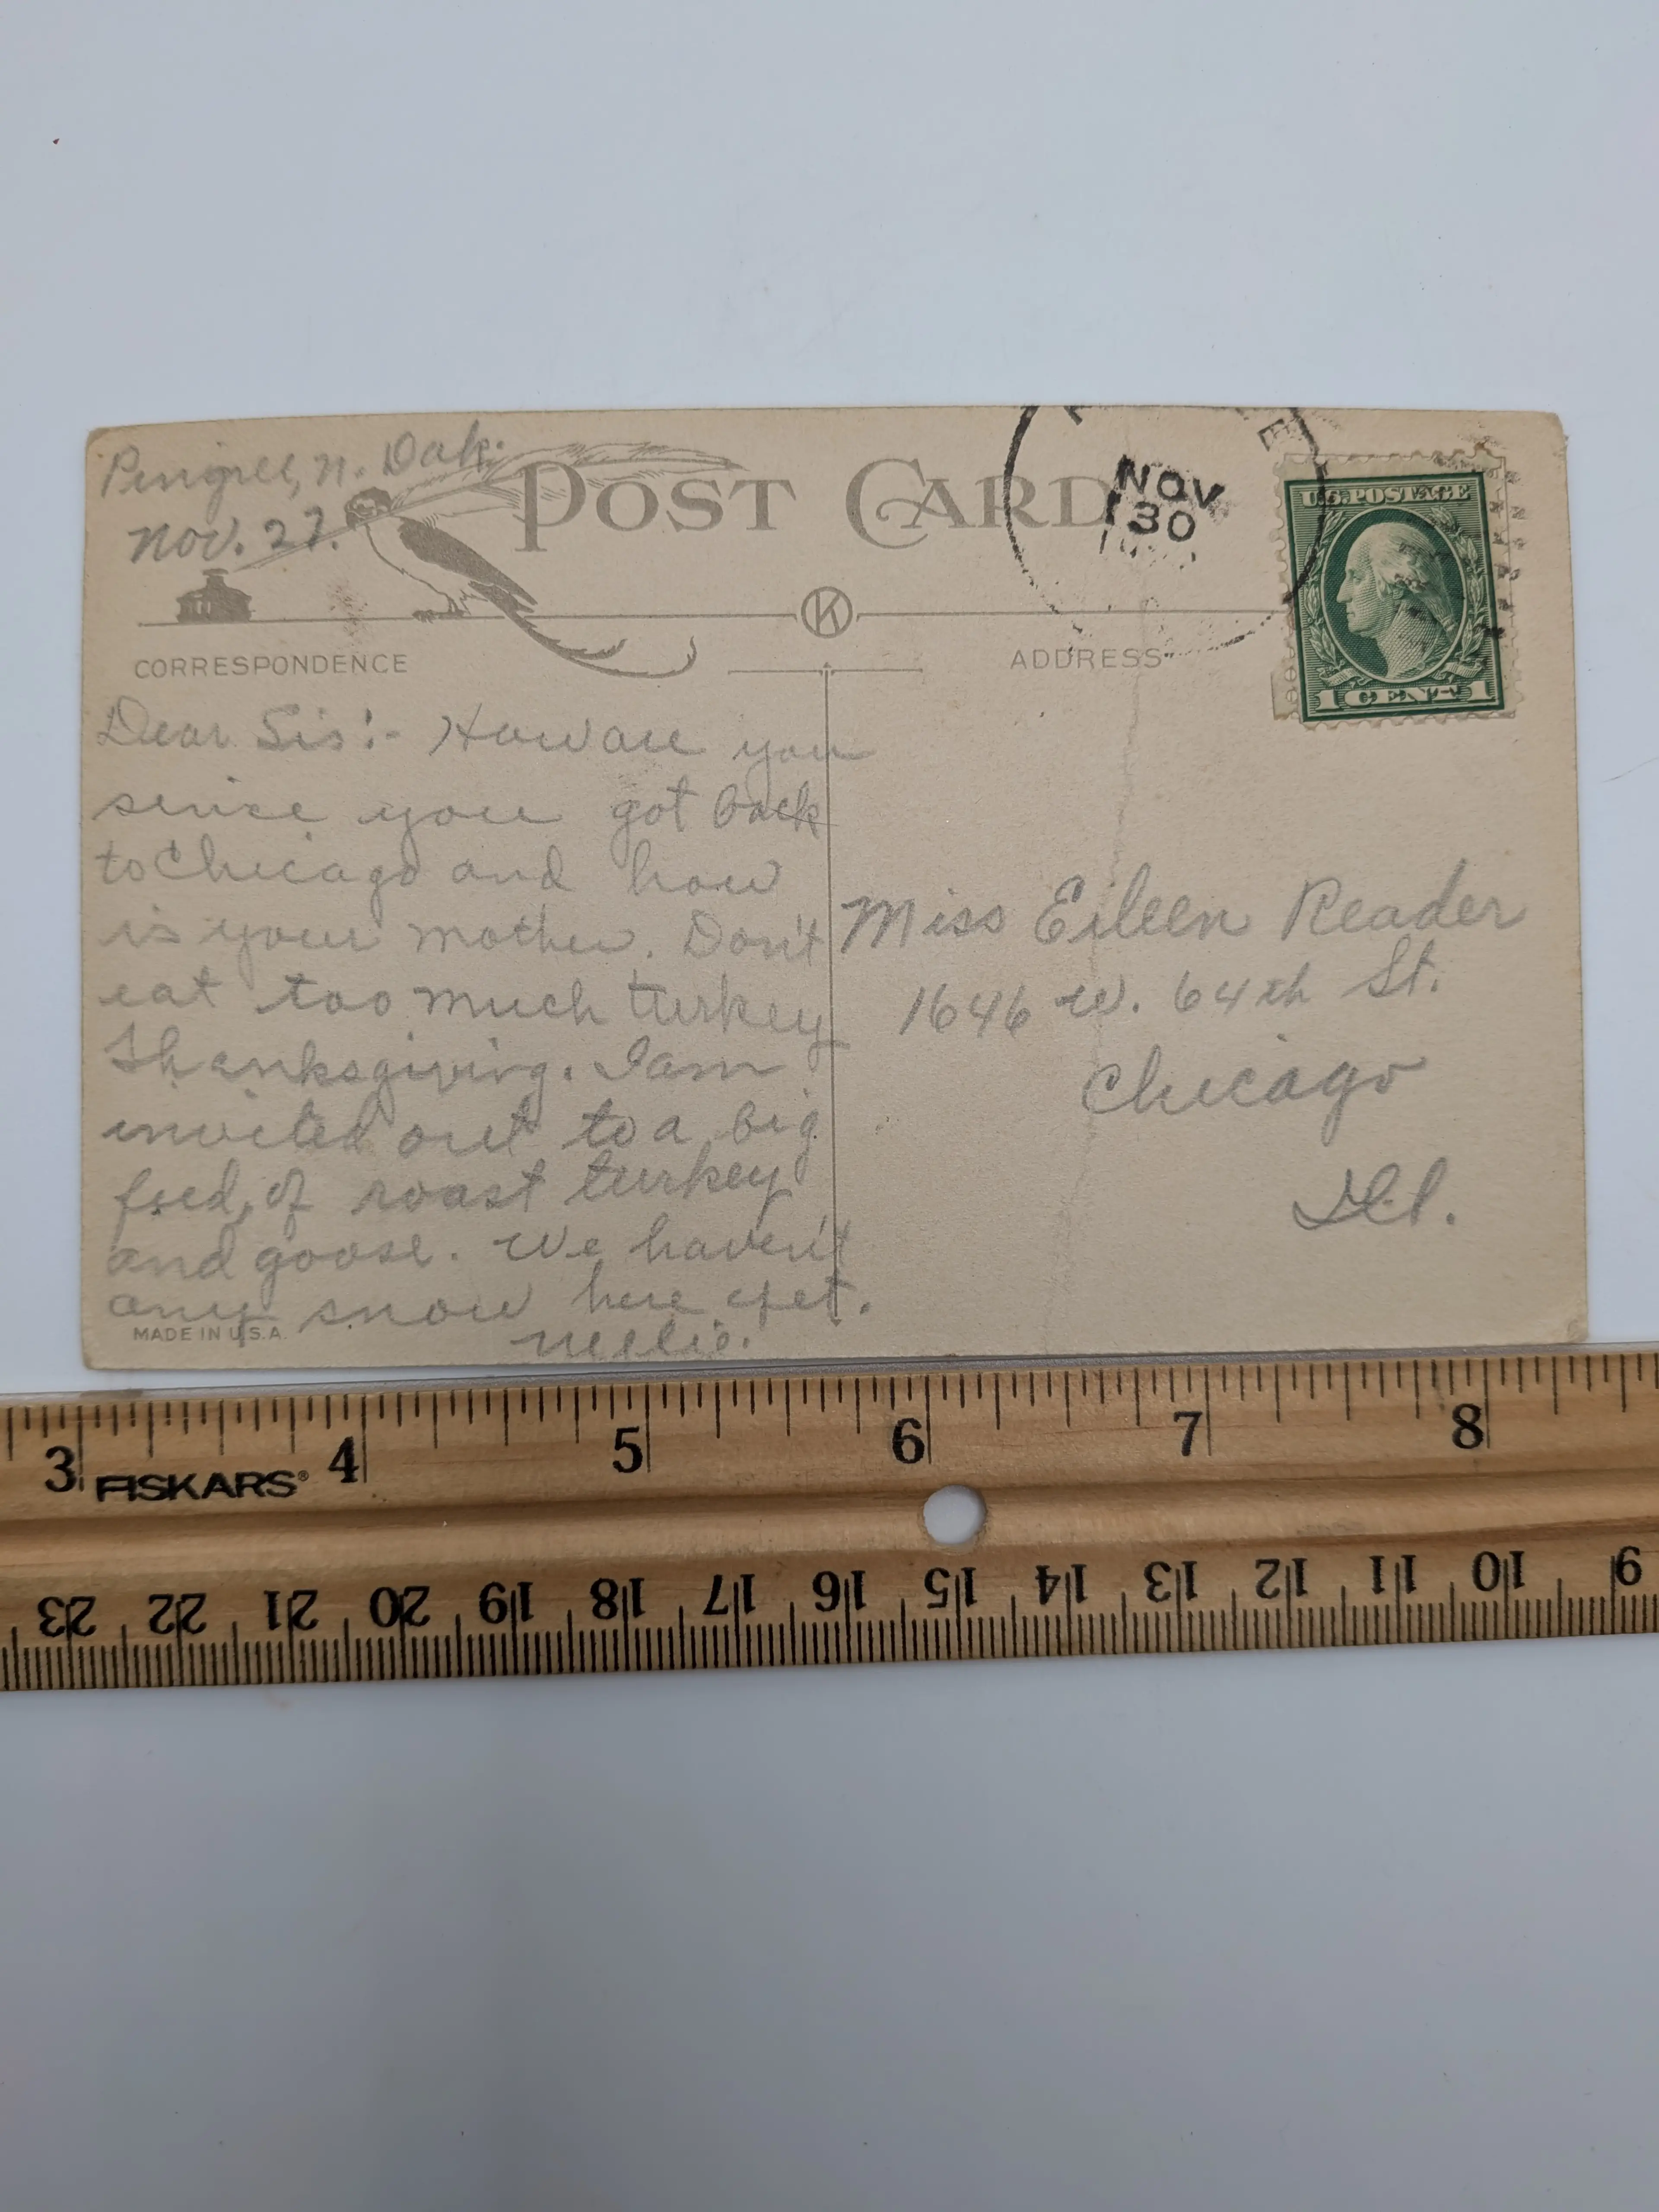 Pingree, N. Dak.
Nov. 27.
POST CARD
NOV
30
U.S. POSTAGE
1 CENT 1
K
CORRESPONDENCE
ADDRESS
Dear Sis:- How are you
since you got back
to Chicago and how
is your mother. Don't
eat too much turkey
Thanksgiving. I am
invited out to a big
feed, of roast turkey
and goose. We haven't
any snow here yet.
Nellie.
MADE IN U.S.A.
Miss Eileen Reader
1646 W. 64th St.
Chicago
Ill.
3 4 5 6 7 8
FISKARS®
23 22 21 20 19 18 17 16 15 14 13 12 11 10 9